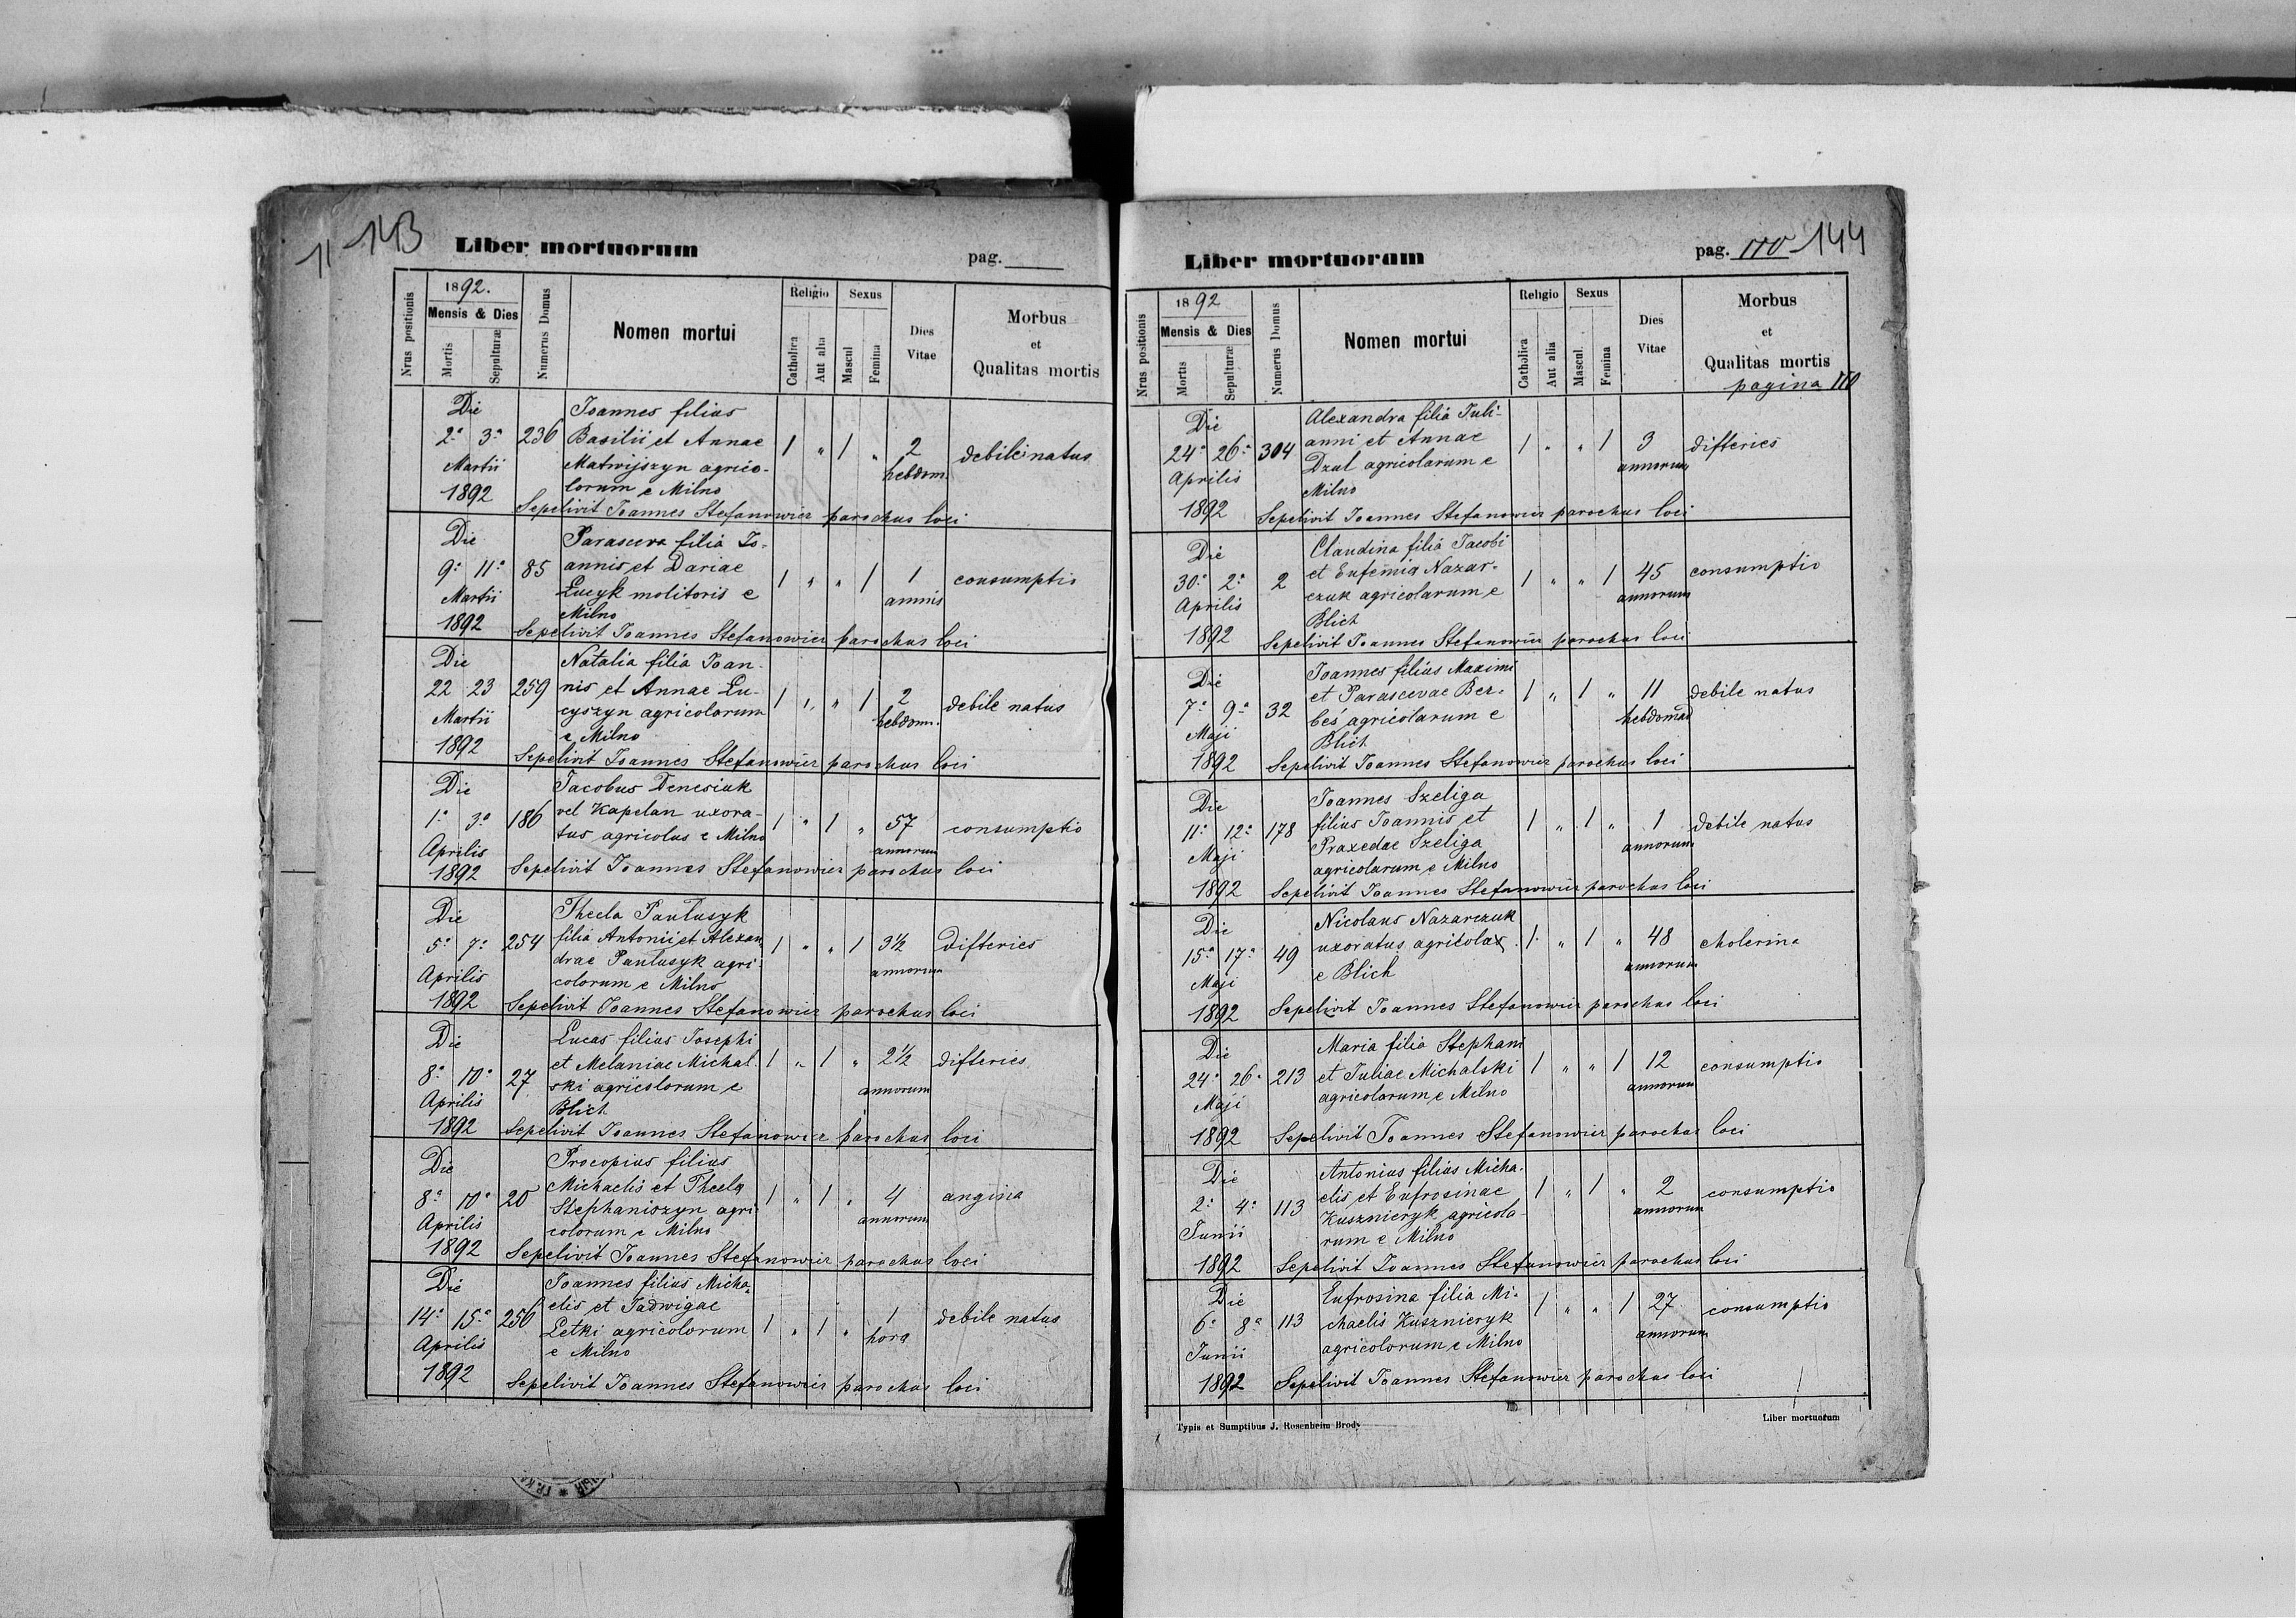 11 143
Liber mortuorum
pag.
Nrus positionis
1892.
Mensis & Dies
Mortis
Sepulturæ
Numerus Domus
Nomen mortui
Religio
Catholica
Aut alia
Sexus
Mascul
Femina
Dies
Vitae
Morbus
et
Qualitas mortis
Die
2ª 3ª
Martii
1892
236
Joannes filius
Basilii et Annae
Matwijszyn agrico-
lorum e Milno
1 " 1 "
2
hebdom.
debile natus
Sepelivit Joannes Stefanowicz parochus loci
Die
9ª 11ª
Martii
1892
85
Parasceva filia Jo-
annis et Dariae
Łucyk molitoris e
Milno
1 " " 1
1
annis
consumptio
Sepelivit Joannes Stefanowicz parochus loci
Die
22 23
Martii
1892
259
Natalia filia Joan-
nis et Annae Łu-
cyszyn agricolorum
e Milno
1 " " 1
2
hebdom.
debile natus
Sepelivit Joannes Stefanowicz parochus loci
Die
1ª 3ª
Aprilis
1892
186
Jacobus Denesiuk
vel Kapelan uxora-
tus agricolus e Milno
1 " 1 "
57
annorum
consumptio
Sepelivit Joannes Stefanowicz parochus loci
Die
5ª 7ª
Aprilis
1892
254
Thecla Pańtusyk
filia Antonii et Alexan
drae Pańtusyk agri-
colorum e Milno
1 " " 1
3½
annorum
difteries
Sepelivit Joannes Stefanowicz parochus loci
Die
8ª 10ª
Aprilis
1892
27
Lucas filius Josephi
et Melaniae Michal-
ski agricolorum e
Blich
1 " 1 "
2½
annorum
difteries
Sepelivit Joannes Stefanowicz parochus loci
Die
8ª 10ª
Aprilis
1892
20
Procopius filius
Michaelis et Thecla
Stephaniszyn agri-
colorum e Milno
1 " 1 "
4
annorum
angina
Sepelivit Joannes Stefanowicz parochus loci
Die
14ª 15ª
Aprilis
1892
256
Joannes filius Micha-
elis et Jadwigae
Łetki agricolorum
e Milno
1 " 1 "
1
hora
debile natus
Sepelivit Joannes Stefanowicz parochus loci
Liber mortuorum
pag. 110 144
Nrus positionis
1892
Mensis & Dies
Mortis
Sepulturæ
Numerus Domus
Nomen mortui
Religio
Catholica
Aut alia
Sexus
Mascul.
Femina
Dies
Vitae
Morbus
et
Qualitas mortis
pagina 110
Die
24ª 26ª
Aprilis
1892
304
Alexandra filia Juli-
anni et Annae
Dzul agricolarum e
Milno
1 " " 1
3
annorum
difteries
Sepelivit Joannes Stefanowicz parochus loci
Die
30ª 2ª
Aprilis
1892
2
Claudina filia Jacobi
et Eufemia Nazar-
czuk agricolarum e
Blich
1 " " 1
45
annorum
consumptio
Sepelivit Joannes Stefanowicz parochus loci
Die
7ª 9ª
Maji
1892
32
Joannes filius Maximi
et Parascevae Ber-
beś agricolarum e
Blich
1 " 1 "
11
hebdomad
debile natus
Sepelivit Joannes Stefanowicz parochus loci
Die
11ª 12ª
Maji
1892
178
Joannes Szeliga
filius Joannis et
Praxedae Szeliga
agricolarum e Milno
1 " 1 "
1
annorum
debile natus
Sepelivit Joannes Stefanowicz parochus loci
Die
15ª 17ª
Maji
1892
49
Nicolaus Nazarczuk
uxoratus agricola
e Blich
1 " 1 "
48
annorum
cholerina
Sepelivit Joannes Stefanowicz parochus loci
Die
24ª 26ª
Maji
1892
213
Maria filia Stephani
et Juliae Michalski
agricolorum e Milno
1 " " 1
12
annorum
consumptio
Sepelivit Joannes Stefanowicz parochus loci
Die
2ª 4ª
Junii
1892
113
Antonius filius Micha-
elis et Eufrosinae
Kusznieryk agricola-
rum e Milno
1 " 1 "
2
annorum
consumptio
Sepelivit Joannes Stefanowicz parochus loci
Die
6ª 8ª
Junii
1892
113
Eufrosina filia Mi-
chaelis Kusznieryk
agricolorum e Milno
1 " " 1
27
annorum
consumptio
Sepelivit Joannes Stefanowicz parochus loci
Typis et Sumptibus J. Rosenheim Brody
Liber mortuorum